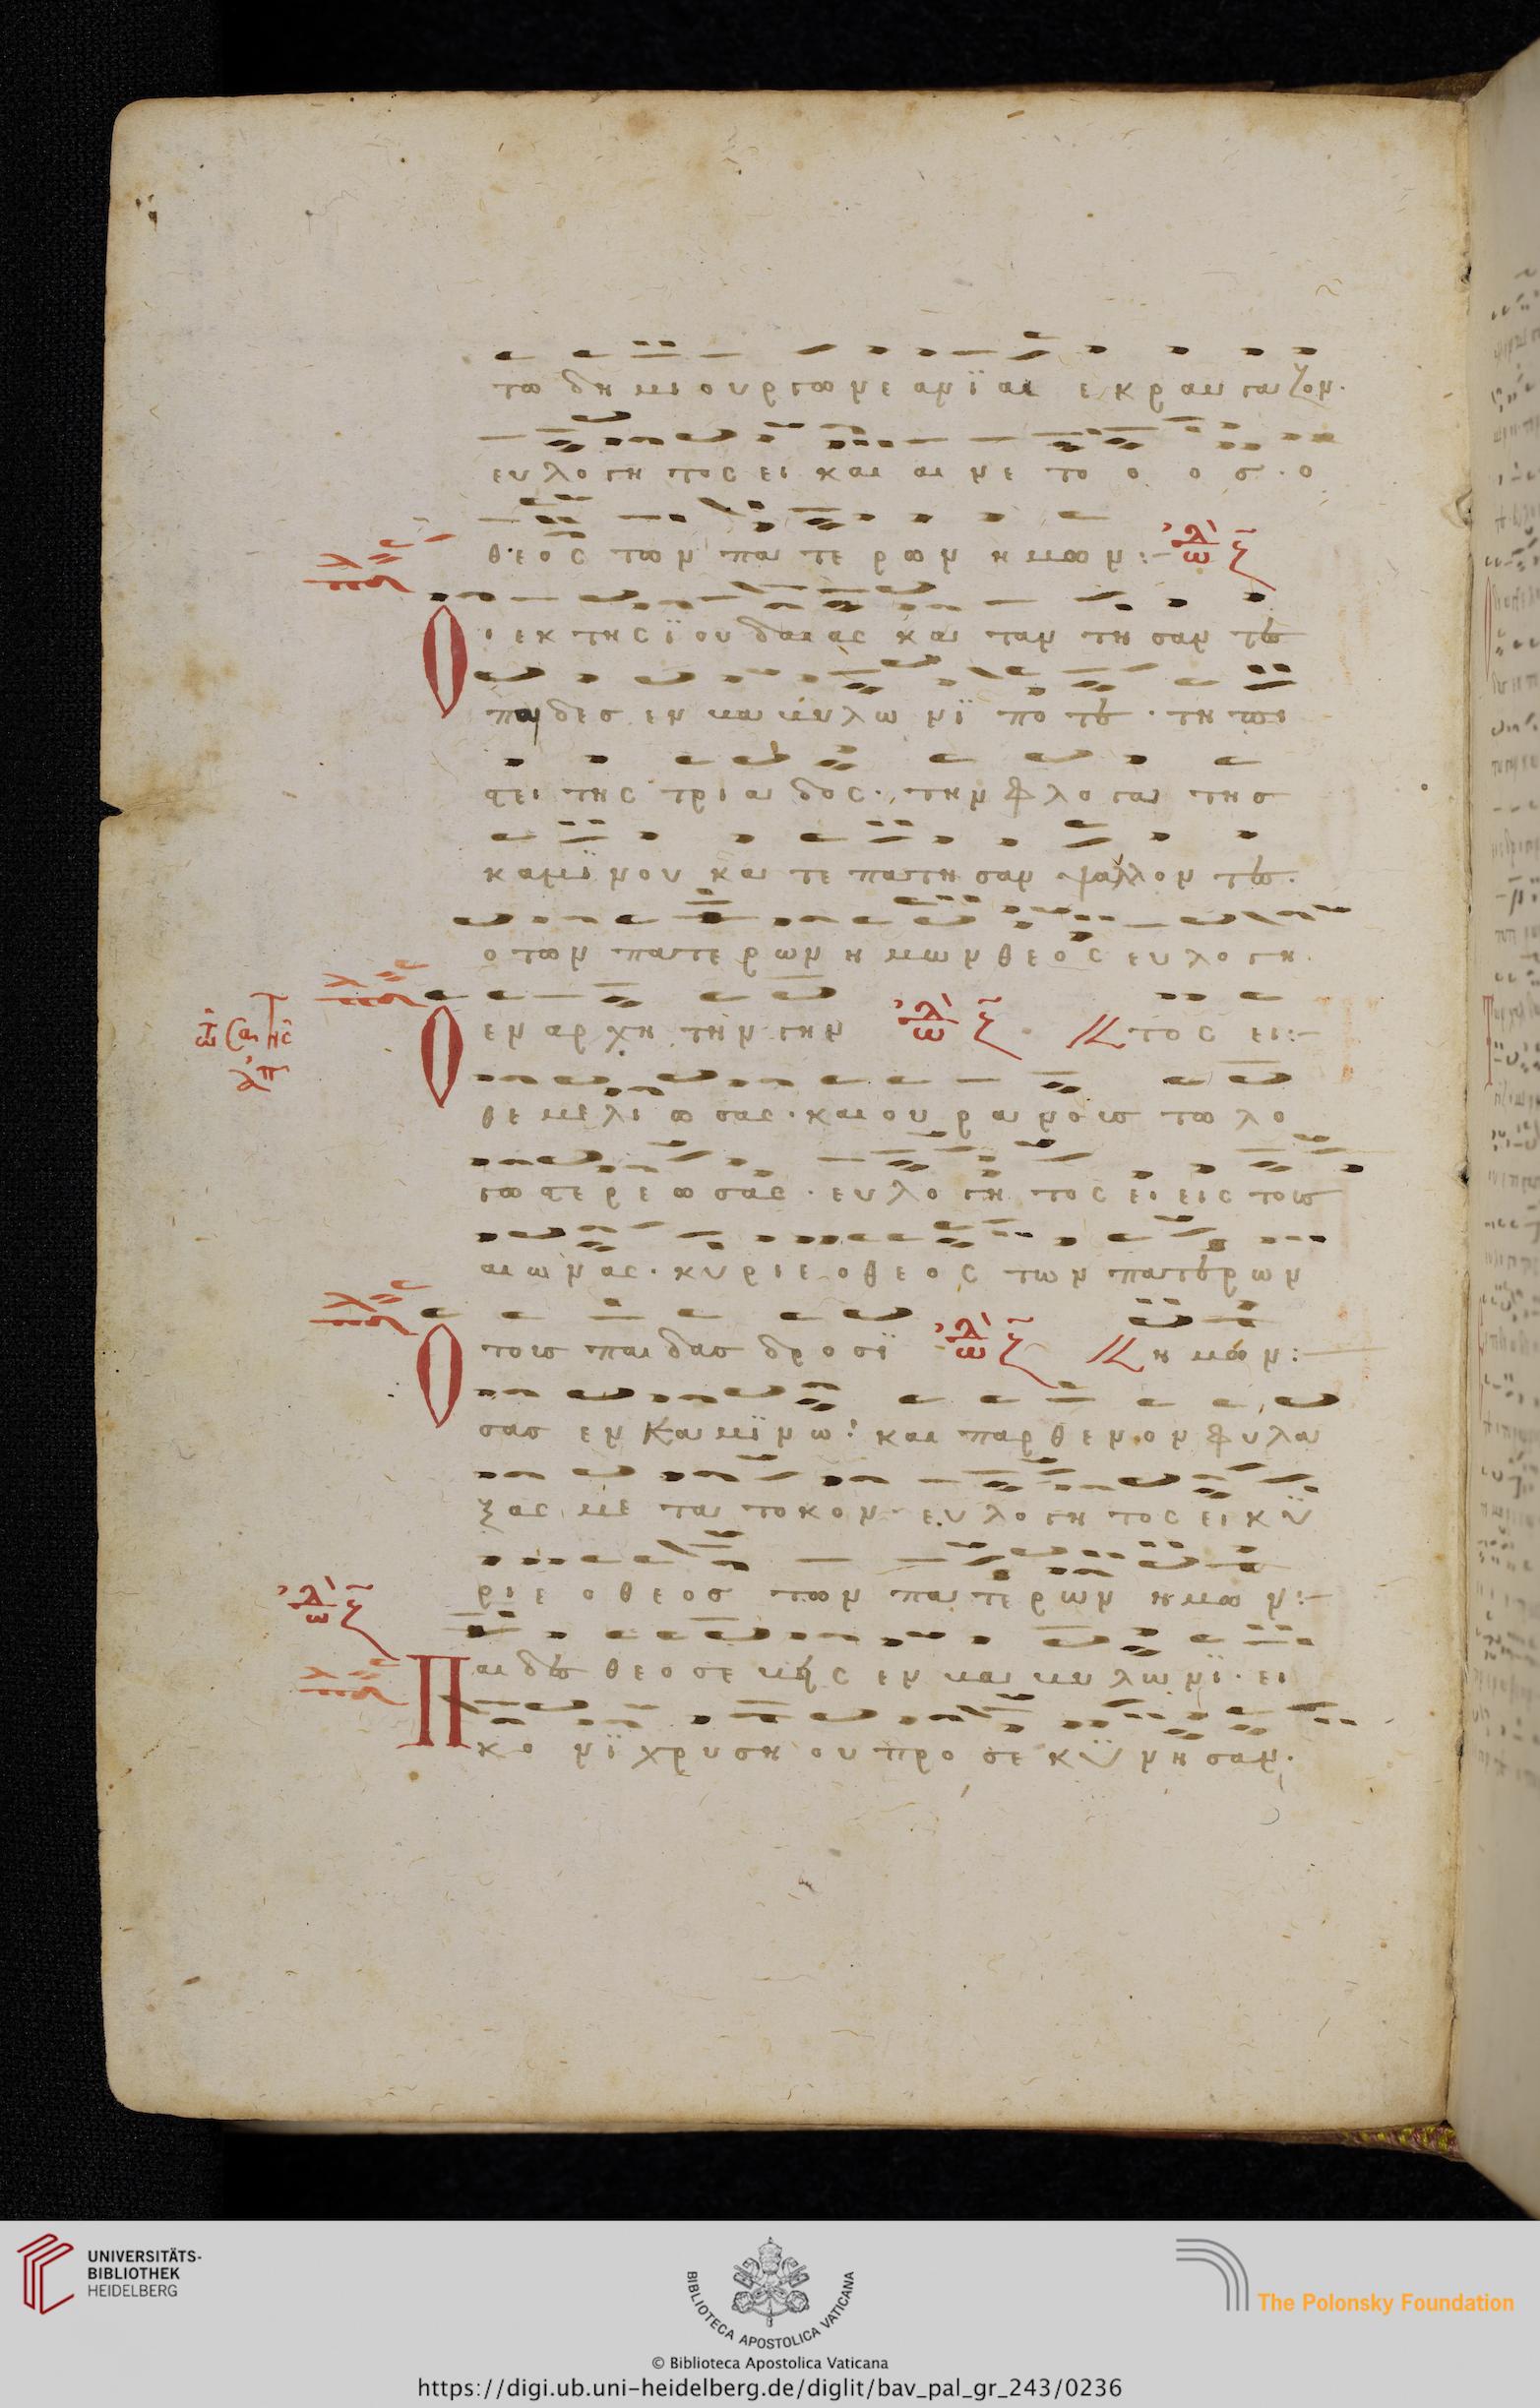 τω δη μι ουργω με αμϊαι εκραυγαζον.
ευλογη τος ει και αι νε το ο ο σ. ο
θεος των πα τε ρων ημων:-
Οι εκ τησ ϊουδαιας και ταν τη σαν τες
παιδεσ εν βαβυλωνϊ ποτε. τη πι
στει της τριαδος. την φλογα τησ
καμϊνου κατεπατησαν ψαλλοντες.
ο των πατερων ημων θεος ευλογη
τος ει:-
Ο εν αρχη την γην
θεμελιωσας. και ουρανουσ τω λο
γω στερεωσας. ευλογητος ει εις τουσ
αιωνας. κυριε ο θεος των πατερων
ημων:
Ο τουσ παιδασ δροσϊ
σασ εν καμϊνω: και παρθενον φυλα
ξας με τα τοκον. ευλογητος ει κϋ
ριε ο θεοσ των πατερων ημων:-
Παιδες θεοσεβης εν βαβυλωνϊ. ει
κο νϊ χρυση ου προσεκϋνησαν.
UNIVERSITÄTS-
BIBLIOTHEK
HEIDELBERG
BIBLIOTECA APOSTOLICA VATICANA
The Polonsky Foundation
© Biblioteca Apostolica Vaticana
https://digi.ub.uni-heidelberg.de/diglit/bav_pal_gr_243/0236